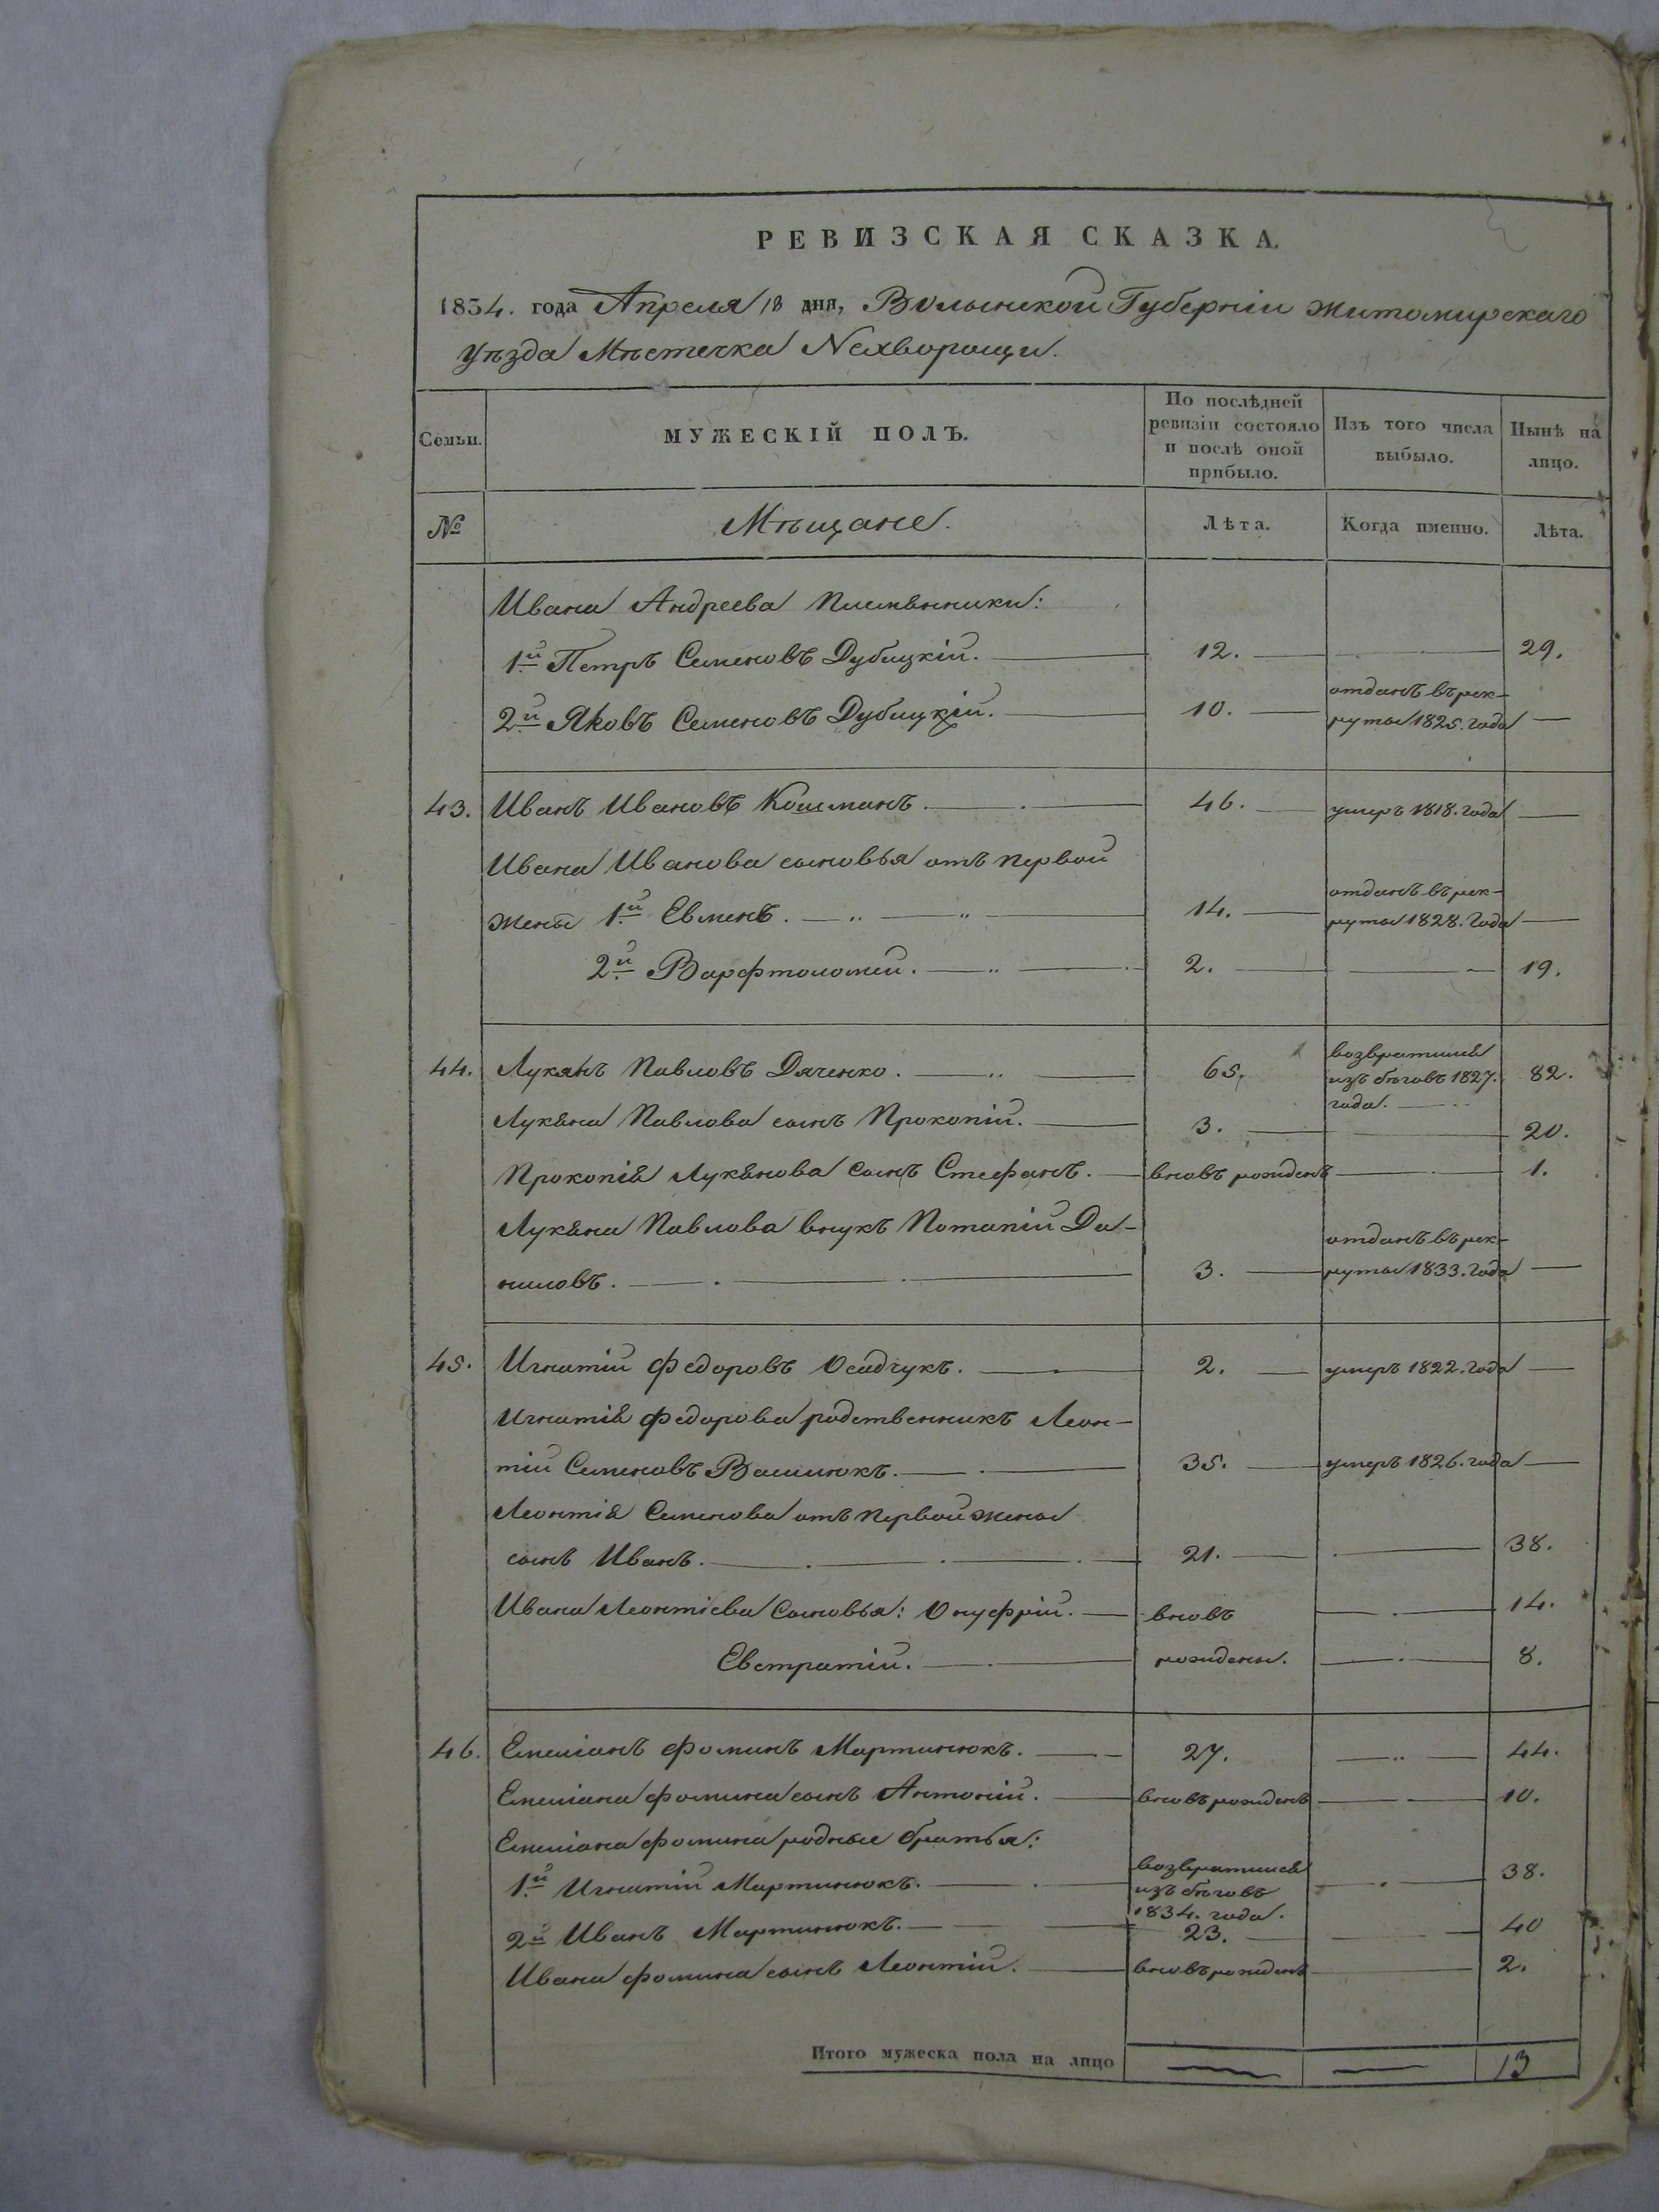 РЕВИЗСКАЯ СКАЗКА.
1834. года Апреля 18 дня, Волынской Губерніи Житомирскаго
Уѣзда Мѣстечка Nехворощи.
Семьи.
МУЖЕСКІЙ ПОЛЪ.
По послѣдней ревизіи состояло и послѣ оной прибыло.
Изъ того числа выбыло.
Нынѣ на лицо.
№
Мѣщане.
Лѣта.
Когда именно.
Лѣта.
Ивана Андреева племянники:
1й Петръ Семеновъ Дубицкій. 12. 29.
2й Яковъ Семеновъ Дубицкій. 10. отданъ въ рек-
руты 1825. года
43. Иванъ Ивановъ Кошманъ. 46. умеръ 1818. года
Ивана Иванова сыновья отъ первой
жены 1й Евменъ. 14. отданъ въ рек-
руты 1828. года
2й Варфтоломей. 2. 19.
44. Лукянъ Павловъ Дяченко. 65. возвратился
изъ бѣговъ 1827. 82.
года.
Лукяна Павлова сынъ Прокопій. 3. 20.
Прокопія Лукянова сынъ Стефанъ. вновь рожденъ 1.
Лукяна Павлова внукъ Потапій Да-
ниловъ. 3. отданъ въ рек-
руты 1833. года
45. Игнатій Федоровъ Осадчукъ. 2. умеръ 1822. года
Игнатія Федорова родственникъ Леон-
тій Семеновъ Ващинюкъ. 35. умеръ 1826. года
Леонтія Семенова отъ первой жены
сынъ Иванъ. 21. 38.
Ивана Леонтіева сыновья: Онуфрій. вновь 14.
Евстратій. рождены. 8.
46. Емиліанъ Фоминъ Мартинюкъ. 27. 44.
Емиліана Фомина сынъ Антоній. вновь рожденъ 10.
Емиліана Фомина родные братья:
1й Игнатій Мартинюкъ. возвратился
изъ бѣговъ
1834. года. 38.
2й Иванъ Мартинюкъ. 23. 40
Ивана Фомина сынъ Леонтій. вновь рожденъ 2.
Итого мужеска пола на лицо 13